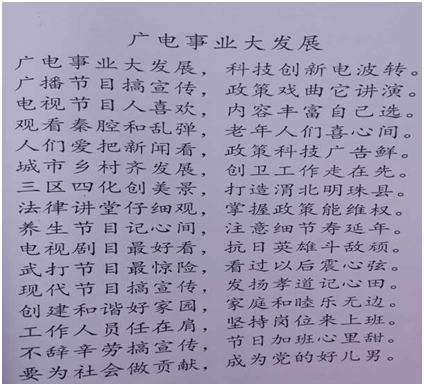 广电事业大发展
广电事业大发展，科技创新电波转。
广播节目搞宣传，政策戏曲它讲演。
电视节目人喜欢，内容丰富自己选。
观看秦腔和乱弹，老年人们喜心间。
人们爱把新闻看，政策科技广告鲜。
城市乡村齐发展，创卫工作走在先。
三区四化创美景，打造渭北明珠县。
法律讲堂仔细观，掌握政策能维权。
养生节目记心间，注意细节寿延年。
电视剧目最好看，抗日英雄斗敌顽。
武打节目最惊险，看过以后震心弦。
现代节目搞宣传，发扬孝道记心田。
创建和谐好家园，家庭和睦乐无边。
工作人员任在肩，坚持岗位来上班。
不辞辛劳搞宣传，节日加班心里甜。
要为社会做贡献，成为党的好儿男。